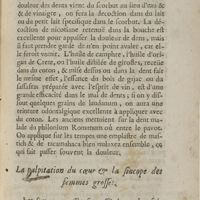 douleur des dents vient du scorbut au lieu d'eau &
de vinaigre, on fera la decoction dans du lait
ou du petit lait specifique dans le scorbut. La dé-
coction de nicotiane retenuë dans la bouche est
excellente pour appaiser la douleur de dens, mais
il faut prendre garde de n'en point avaler, car el-
le feroit vomir. L'huile de camphre, l'huile d'ori-
gan de Crete, ou l'huile distilée de girofles, receuë
dans du coton, & mise dessus ou dans la dent, font
le même effet, l'essence du bois de gajac ou du
sassafras preparée avec l'esprit de vin, est d'une
grande efficacité dans le mal de dents, si on y dis-
sout quelques grains de laudanum, on aura une
teinture odontalgique excellente à appliquer avec
du coton. Les anciens mettoient sur la dent mala-
de du philonium Romanum où entre le pavot.
On applique sur les tempes une emplastre de mas-
tich & de tacamahaca bien malaxez ensemble, ce
qui fait passer souvent la douleur.
La palpitation du cœur & la sincope des
femmes grosses.